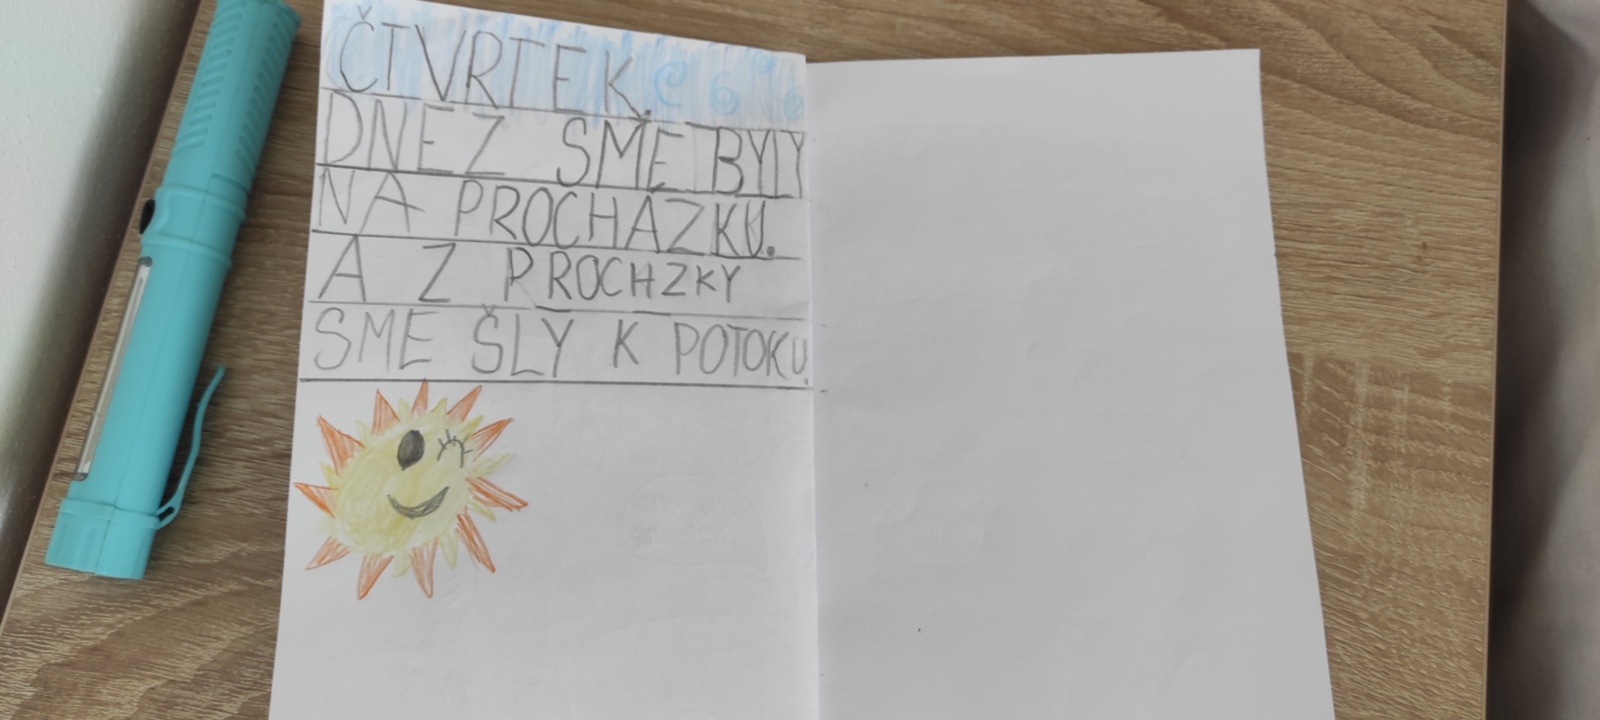 ČTVRTEK.
DNEZ SME BYLY
NA PROCHAZKU.
A Z PROCHZKY
SME ŠLY K POTOKU.